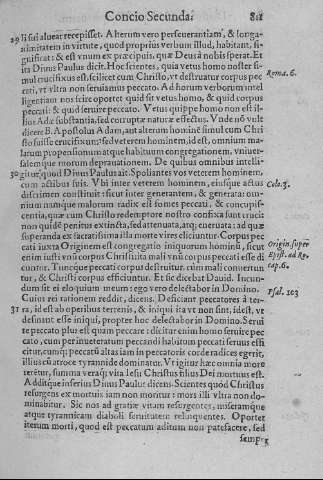 Concio Secunda: 811
29 li sui aluear recepisset. Alterum vero perseuerantiam, & longa-
nimitatem in virtute, quod proprius verbum illud, habitant, si-
gnificat: & est vnum ex præcipuis, quæ Deus à nobis sperat. Et
ita Diuus Paulus dicit. Hoc scientes, quia vetus homo noster si-
mul crucifixus est: scilicet cum Christo, vt destruatur corpus pec-
cati, vt vltra non seruiamus peccato. Ad horum verborum intel
ligentiam nos scire oportet quid sit vetus homo, & quid corpus
peccati: & quid seruire peccato. Vetus quippe homo non est il-
lius Adæ substantia, sed corruptæ naturæ effectus. Vnde nō vult
dicere B. Apostolus Adam, aut alterum hominē simul cum Chri
sto fuisse crucifixum: sed veterem hominem, id est, omnium ma-
larum propensionum atque habituum congregationem, vniuer-
salemque morum deprauationem. De quibus omnibus intelli-
30 gitur, quod Diuus Paulus ait. Spoliantes vos veterem hominem,
cum actibus suis. Vbi inter veterem hominem, eiusque actus
discrimen constituit: sicut inter generantem, & generata: om-
nium nanque malorum radix est fomes peccati, & concupis-
centia, quæ cum Christo redemptore nostro confixa sunt crucit
non quidē penitus extincta, sed attenuata, atq; eneruata: ad quæ
superanda ex sacratissima illa morte vires elicuntur. Corpus pec
cati iuxta Originem est congregatio iniquorum hominū, sicut
enim iusti vnū corpus Christi, ita mali vnū corpus peccati esse di
cuntur. Tuncque peccati corpus destruitur, cùm mali conuertun
tur, & Christi corpus efficiuntur. Et sic dicebat Dauid. Iucun-
dum sit ei eloquium meum: ego vero delectabor in Domino.
Cuius rei rationem reddit, dicens. Deficiant peccatores à ter-
31 ra, id est ab operibus terrenis, & iniqui ita vt non sint, idest, vt
desinant esse iniqui, propter hoc delectabor in Domino. Serui
re peccato plus est quam peccare: dicitur enim homo seruire pec
cato, cum per inueteratum peccandi habitum peccati seruus effi
citur, cumq; peccatū altas iam in peccatoris corde radices egerit,
illius cū atroce tyrannide dominatur. Vt igitur hæc omnia more
rētur, summa veraq; vita Iesu Christus filius Dei mortuus est.
Additque inferius Diuus Paulus dicens. Scientes quod Christus
resurgens ex mortuis iam non moritur: mors illi vltra non do-
minabitur. Sic nos ad gratiæ vitam resurgentes, miseramque
atque tyrannicam diaboli seruitutem relinquentes. Oportet
iterum mori, quod est peccatum aditum non patefacere, sed
semper
Roma. 6.
Colo. 3.
Origin. super
Epist. ad Ro.
cap. 6.
Psal. 103